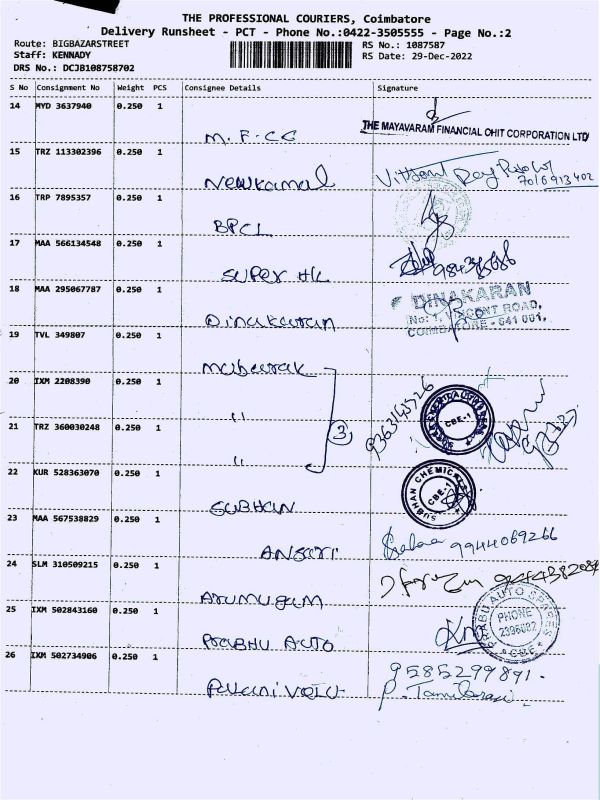 THE PROFESSIONAL COURIERS, Coimbatore
Delivery Runsheet - PCT - Phone No.:0422-3505555 - Page No.:2
Route: BIGBAZARSTREET
Staff: KENNADY
DRS No.: DCJB108758702
RS No.: 1087587
RS Date: 29-Dec-2022
S No Consignment No Weight PCS Consignee Details Signature
14 MYD 3637940 0.250 1
M.F.CC
THE MAYAVARAM FINANCIAL CHIT CORPORATION LTD
15 TRZ 113302396 0.250 1
Newkamal
7016913402
16 TRP 7895357 0.250 1
BPCL
17 MAA 566134548 0.250 1
SUPER
18 MAA 295067787 0.250 1
Dinakaran
DINAKARAN
No: 1, VINCENT ROAD,
COIMBATORE - 641 001.
19 TVL 349807 0.250 1
Mubarak
20 IXM 2208390 0.250 1
"
9363143526
CBE-1
21 TRZ 360030248 0.250 1
"
3
22 KUR 528363070 0.250 1
SUBHAN
SUBHAN CHEMICAL
CBE-1
23 MAA 567538829 0.250 1
ANSARI
9944069266
24 SLM 310509215 0.250 1
Arumugam
25 IXM 502843160 0.250 1
PRABHU AUTO
PRABU AUTO SPARES
PHONE
2396682
CBE
26 IXM 502734906 0.250 1
Palani velu
9585299891.
P. Tamilarasi